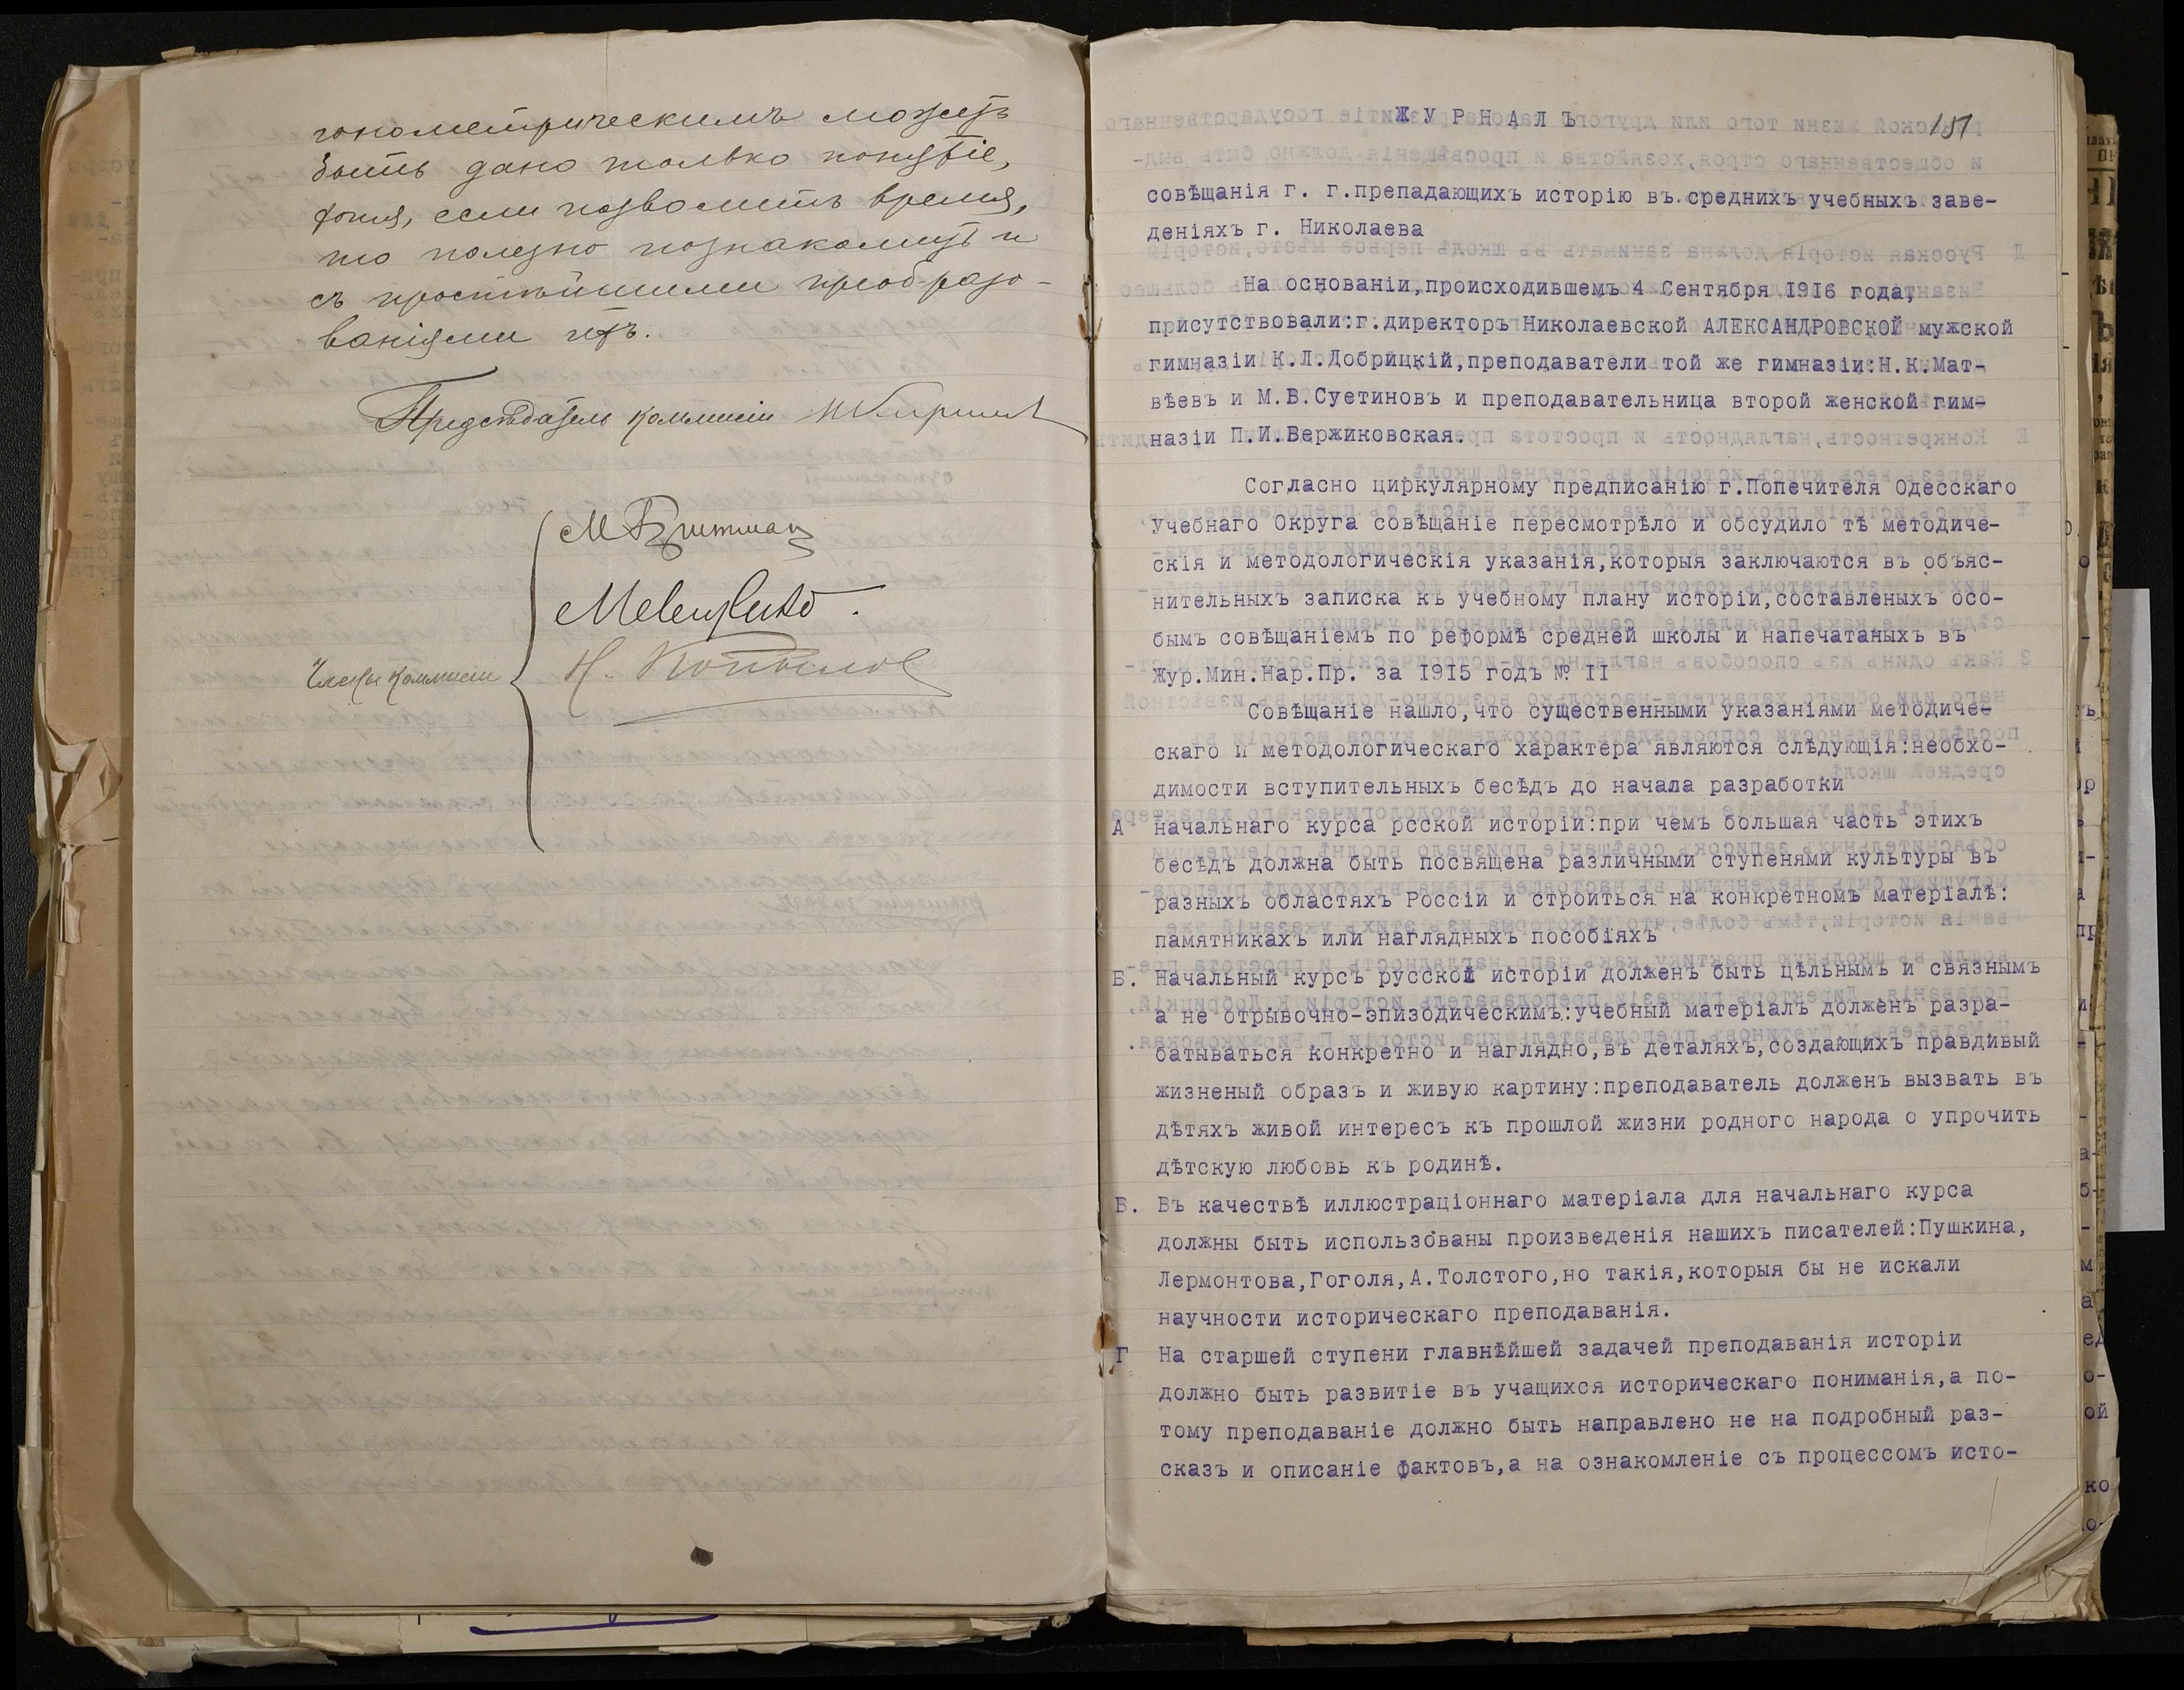 гонометрическимъ можетъ
быть дано только понятіе,
хотя, если позволитъ время,
то полезно познакомить и
съ простѣйшими преобразо-
ваніями ихъ.
Предсѣдатель Коммисіи
Члены Коммисіи
Н. Копылов
151
ЖУРНАЛЪ
совѣщанія г. г.препадающихъ исторію въ среднихъ учебныхъ заве-
деніяхъ г. Николаева
На основаніи,происходившемъ 4 Сентября 1916 года,
присутствовали:г.директоръ Николаевской АЛЕКСАНДРОВСКОЙ мужской
гимназіи К.Л.Добрицкій,преподаватели той же гимназіи:Н.К.Мат-
вѣевъ и М.В.Суетиновъ и преподавательница второй женской гим-
назіи П.И.Вержиковская.
Согласно циркулярному предписанію г.Попечителя Одесскаго
Учебнаго Округа совѣщаніе пересмотрѣло и обсудило тѣ методиче-
скія и методологическія указанія,которыя заключаются въ объяс-
нительныхъ записка къ учебному плану исторіи,составленыхъ осо-
бымъ совѣщаніемъ по реформѣ средней школы и напечатаныхъ въ
Жур.Мин.Нар.Пр. за 1915 годъ № II
Совѣщаніе нашло,что существенными указаніями методиче-
скаго и методологическаго характера являются слѣдующія:необхо-
димости вступительныхъ бесѣдъ до начала разработки
А начальнаго курса рсской исторіи:при чемъ большая часть этихъ
бесѣдъ должна быть посвящена различными ступенями культуры въ
разныхъ областяхъ Россіи и строиться на конкретномъ матеріалѣ:
памятникахъ или наглядныхъ пособіяхъ
Б. Начальный курсъ русской исторіи долженъ быть цѣльнымъ и связнымъ
а не отрывочно-эпизодическимъ:учебный матеріалъ долженъ разра-
батываться конкретно и наглядно,въ деталяхъ,создающихъ правдивый
жизненый образъ и живую картину:преподаватель долженъ вызвать въ
дѣтяхъ живой интересъ къ прошлой жизни родного народа о упрочить
дѣтскую любовь къ родинѣ.
В. Въ качествѣ иллюстраціоннаго матеріала для начальнаго курса
должны быть использованы произведенія нашихъ писателей:Пушкина,
Лермонтова,Гоголя,А.Толстого,но такія,которыя бы не искали
научности историческаго преподаванія.
Г На старшей ступени главнѣйшей задачей преподаванія исторіи
должно быть развитіе въ учащихся историческаго пониманія,а по-
тому преподаваніе должно быть направлено не на подробный раз-
сказъ и описаніе фактовъ,а на ознакомленіе съ процессомъ исто-